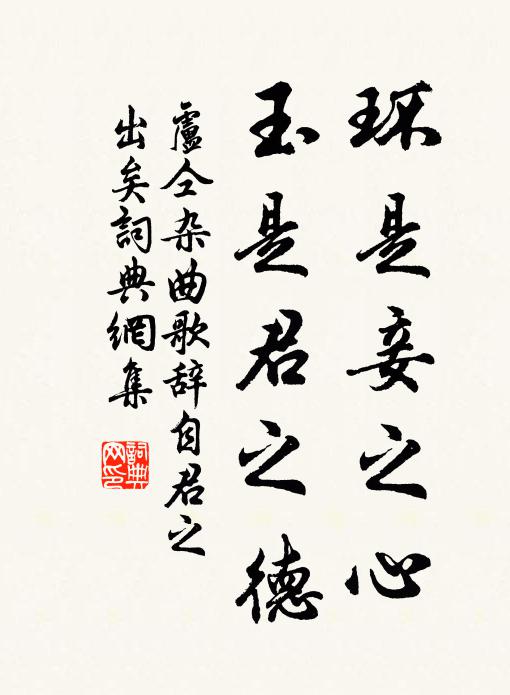 环是妾之心
玉是君之德
盧仝杂曲歌辞自君之
出矣詞典網集
詞典
网印